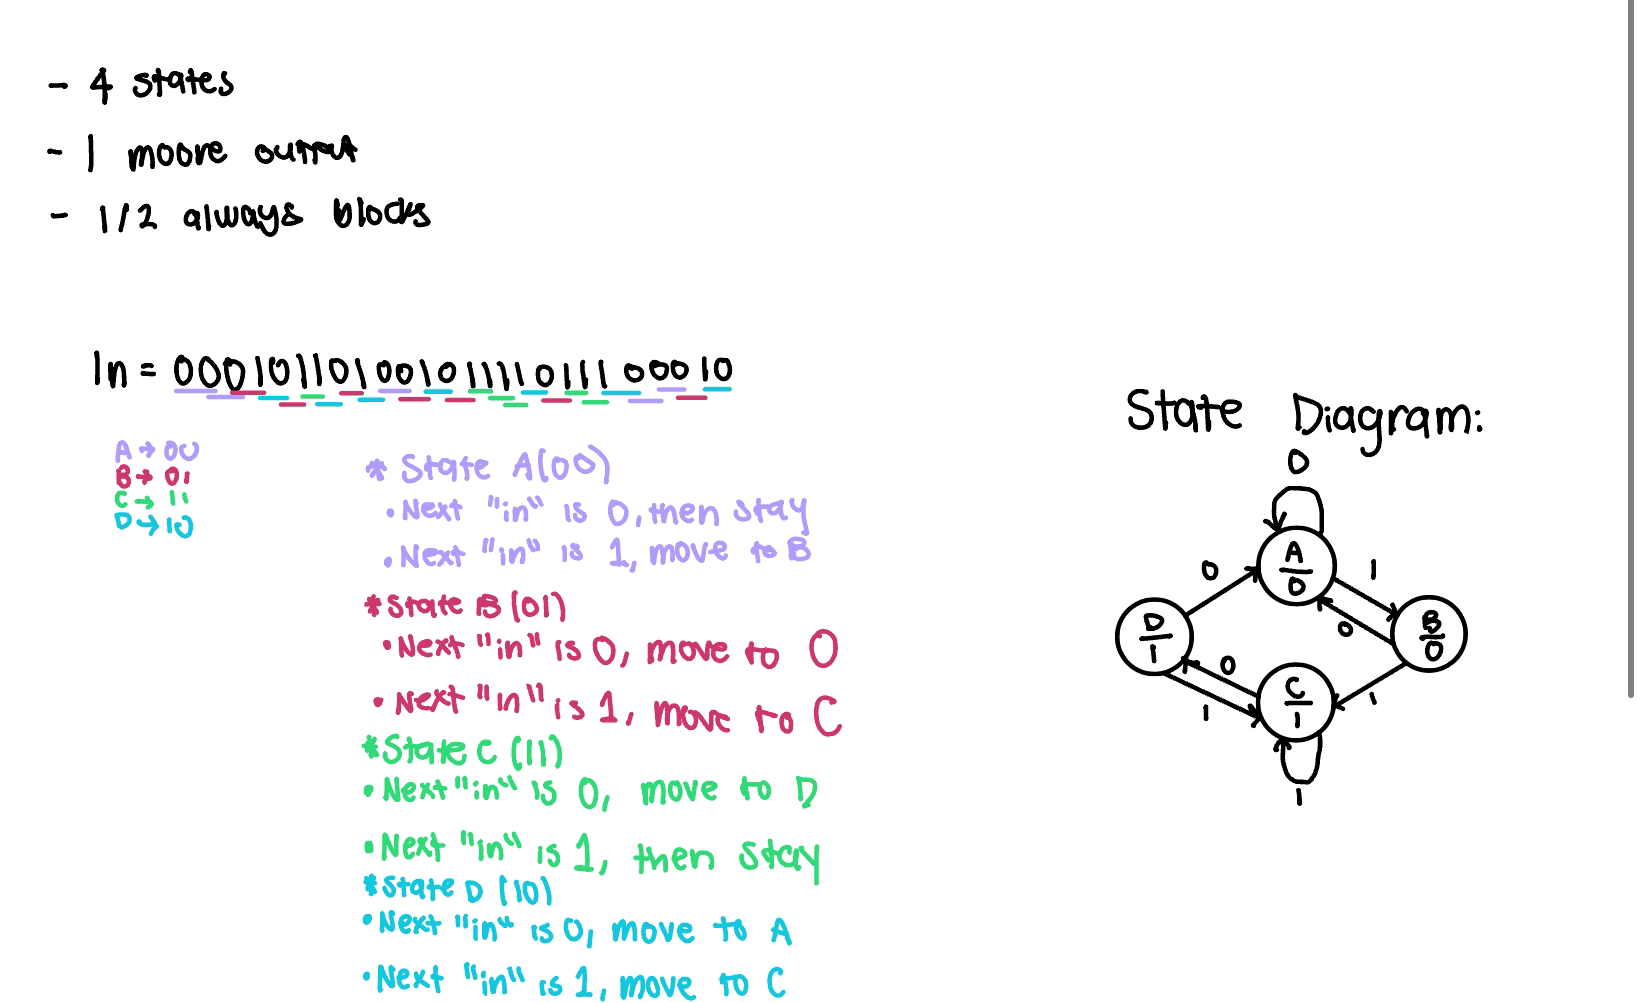 - 4 states
- 1 moore output
- 1/2 always blocks
In = 00010110100101111011100010
State Diagram:
A → 00
B → 01
C → 11
D → 10
* State A(00)
• Next "in" is 0, then stay
• Next "in" is 1, move to B
* State B (01)
• Next "in" is 0, move to 0
• Next "in" is 1, move to C
* State C (11)
• Next "in" is 0, move to D
• Next "in" is 1, then stay
* State D (10)
• Next "in" is 0, move to A
• Next "in" is 1, move to C
0
A
0
0
1
D
1
0
B
0
0
1
C
1
1
1